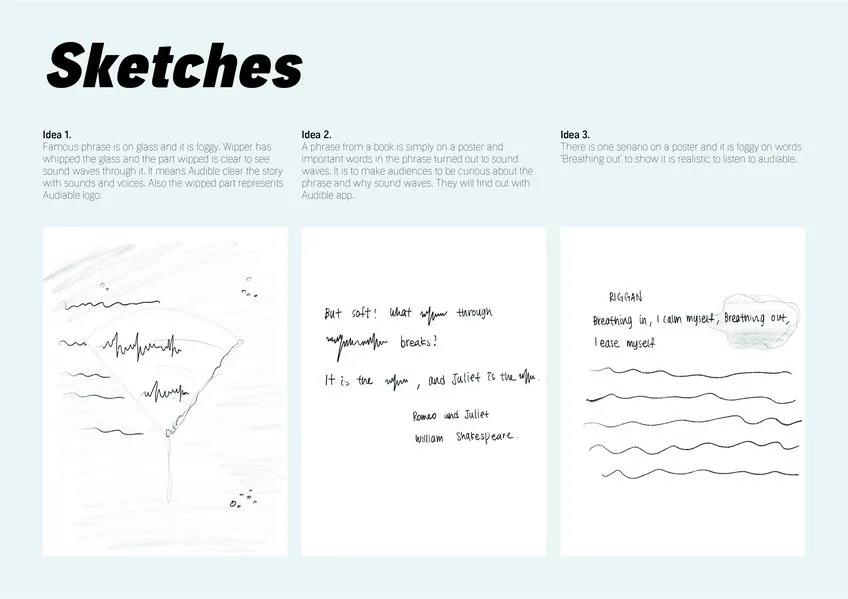 Sketches
Idea 1.
Famous phrase is on glass and it is foggy. Wipper has
whipped the glass and the part wipped is clear to see
sound waves through it. It means Audible clear the story
with sounds and voices. Also the wipped part represents
Audiable logo.
Idea 2.
A phrase from a book is simply on a poster and
important words in the phrase turned out to sound
waves. It is to make audiences to be curious about the
phrase and why sound waves. They will find out with
Audible app.
Idea 3.
There is one senario on a poster and it is foggy on words
'Breathing out' to show it is realistic to listen to audiable.
But soft! What through
breaks?
It is the , and Juliet is the .
Romeo und Juliet
William Shakespeare.
RIGGAN
Breathing in, I calm myself, Breathing out,
I ease myself